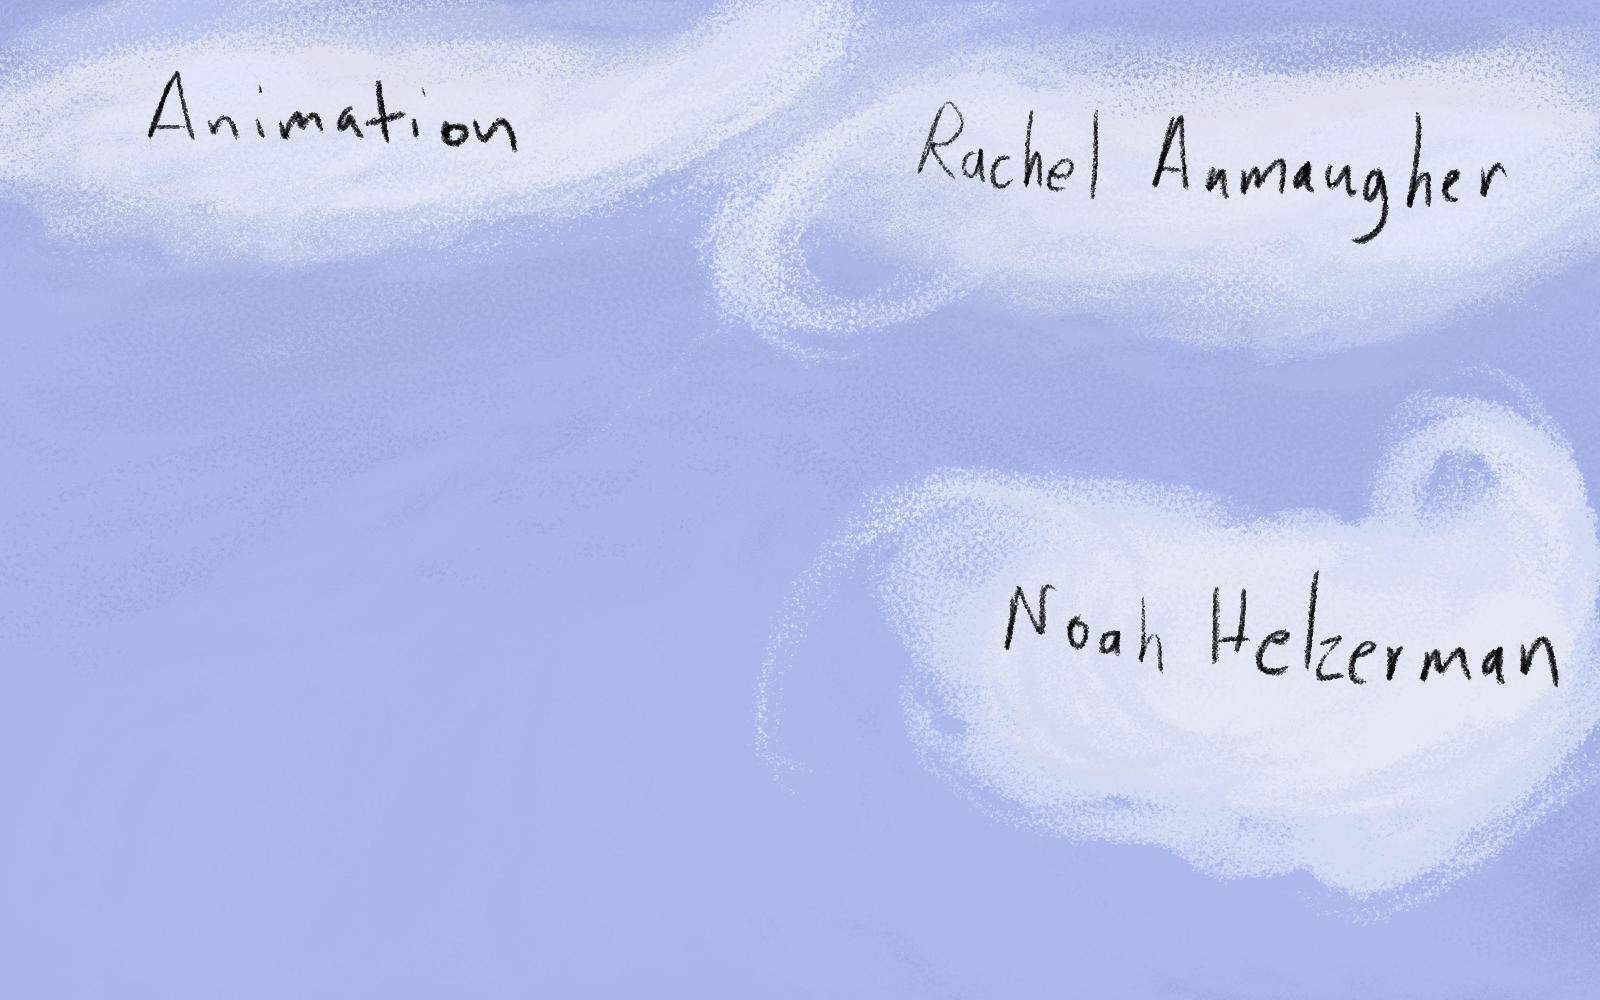 Animation
Rachel Anmaugher
Noah Helzerman